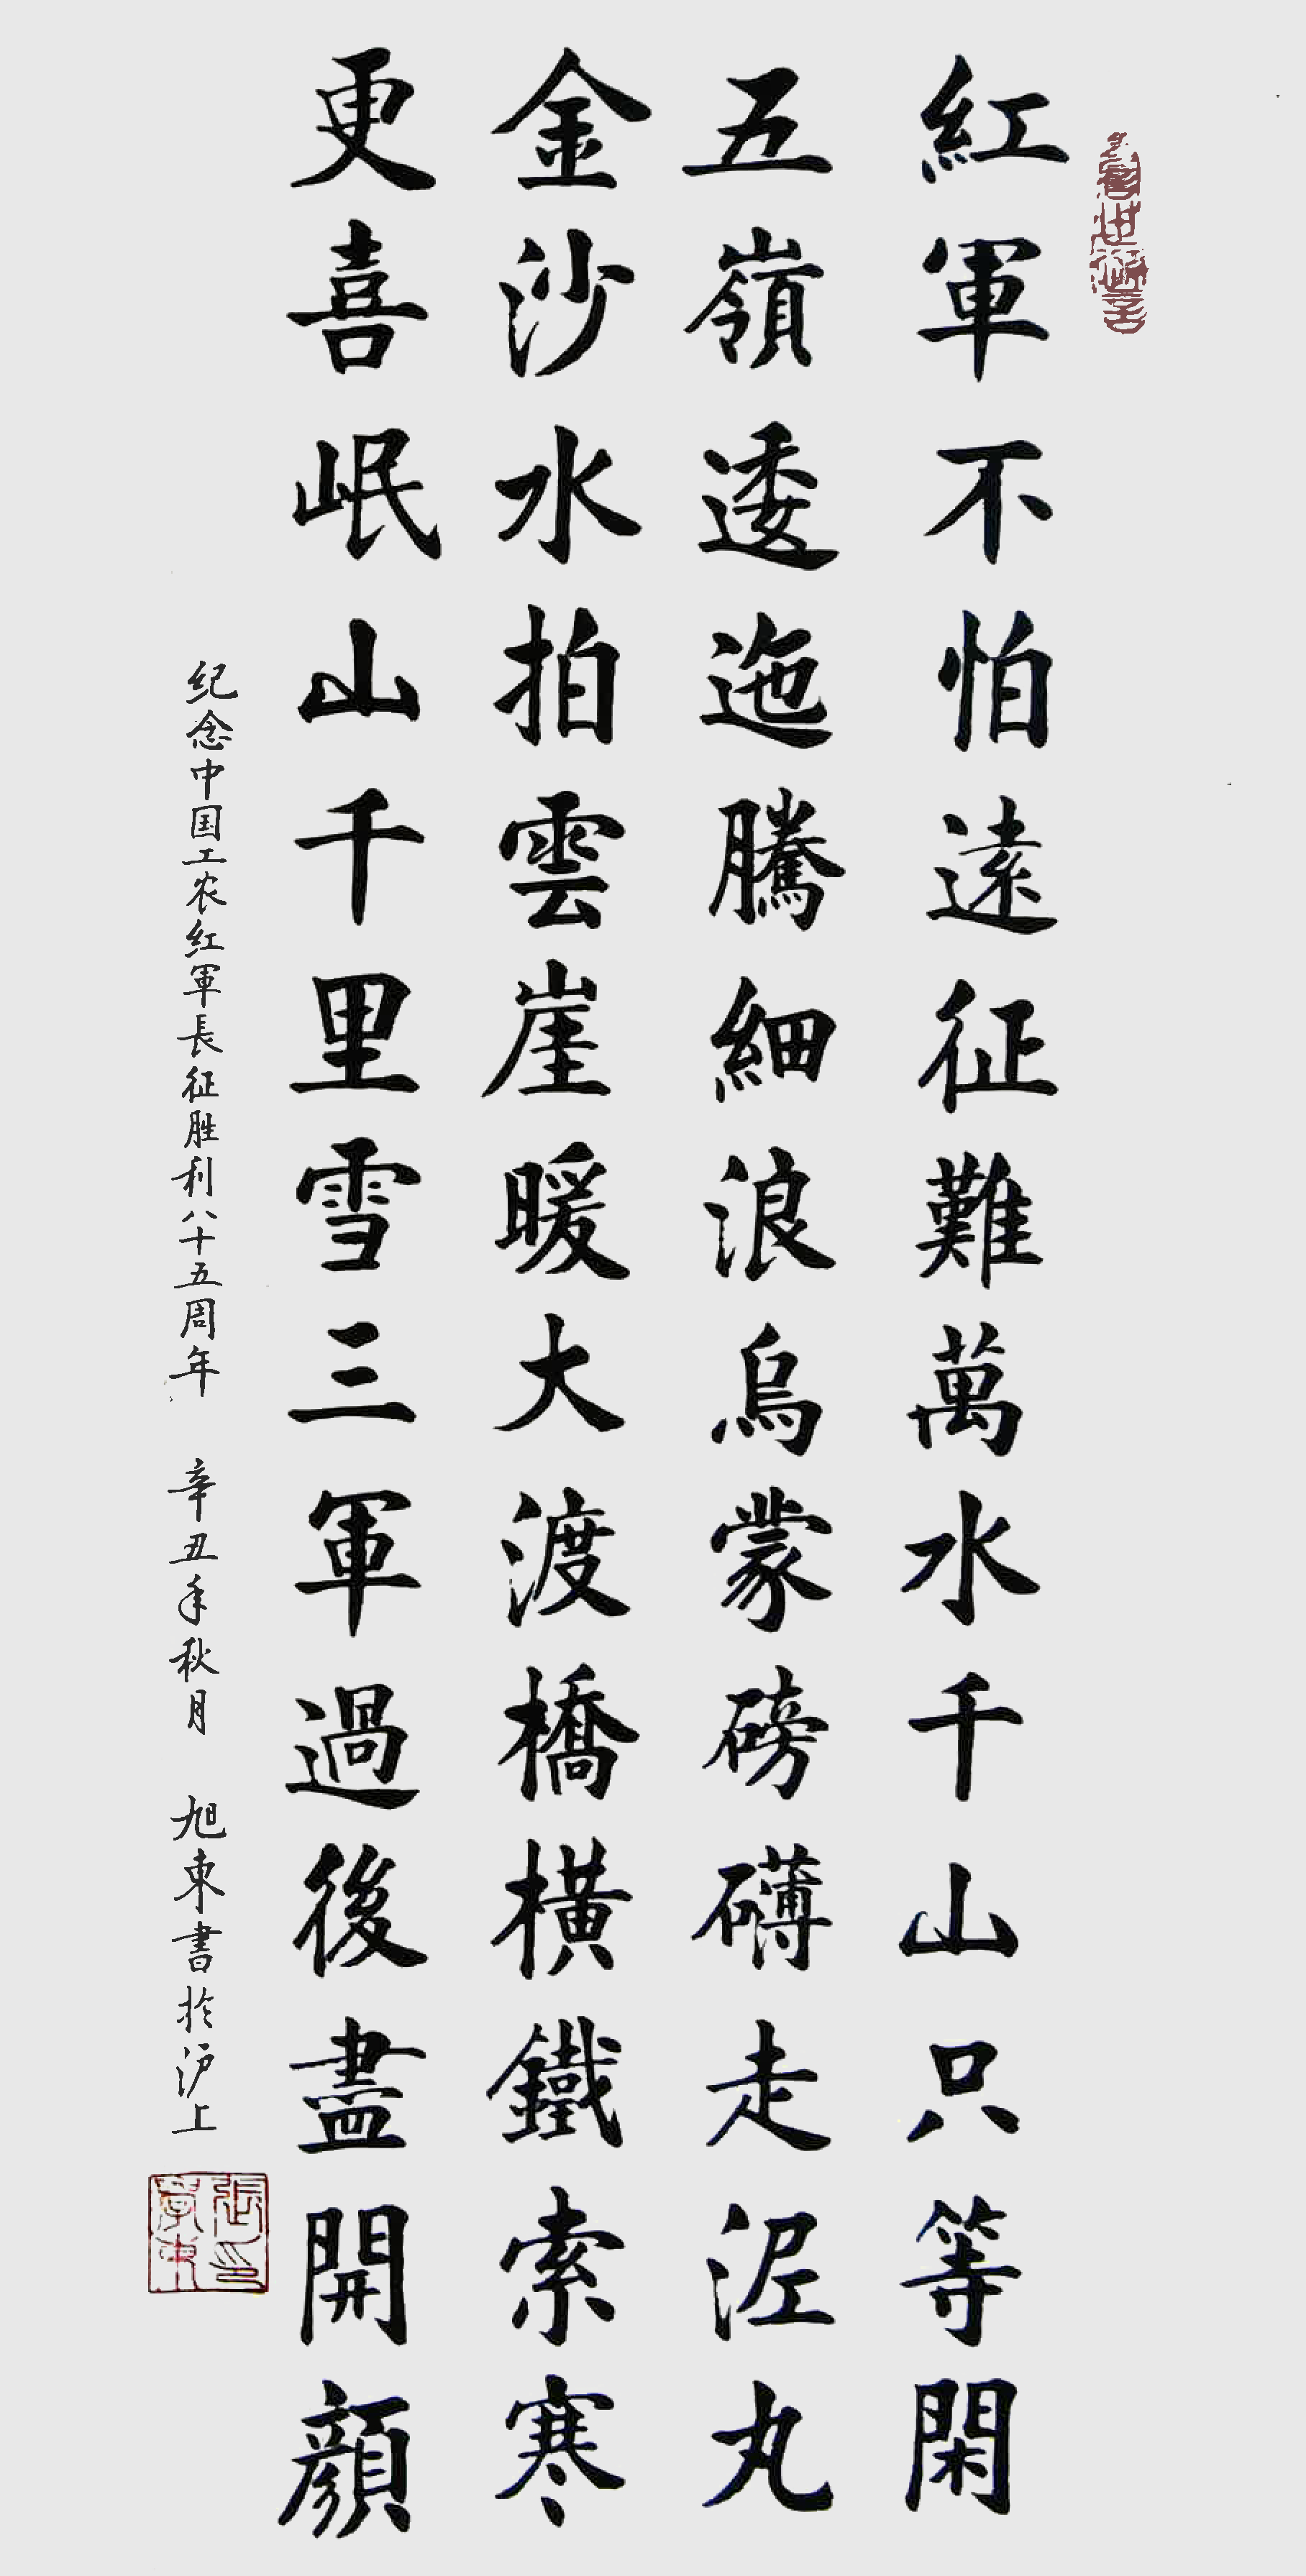 紅軍不怕遠征難萬水千山只等閑
五嶺逶迤騰細浪烏蒙磅礴走泥丸
金沙水拍雲崖暖大渡橋橫鐵索寒
更喜岷山千里雪三軍過後盡開顏
纪念中国工农红軍長征胜利八十五周年 辛丑年秋月 旭東書於沪上